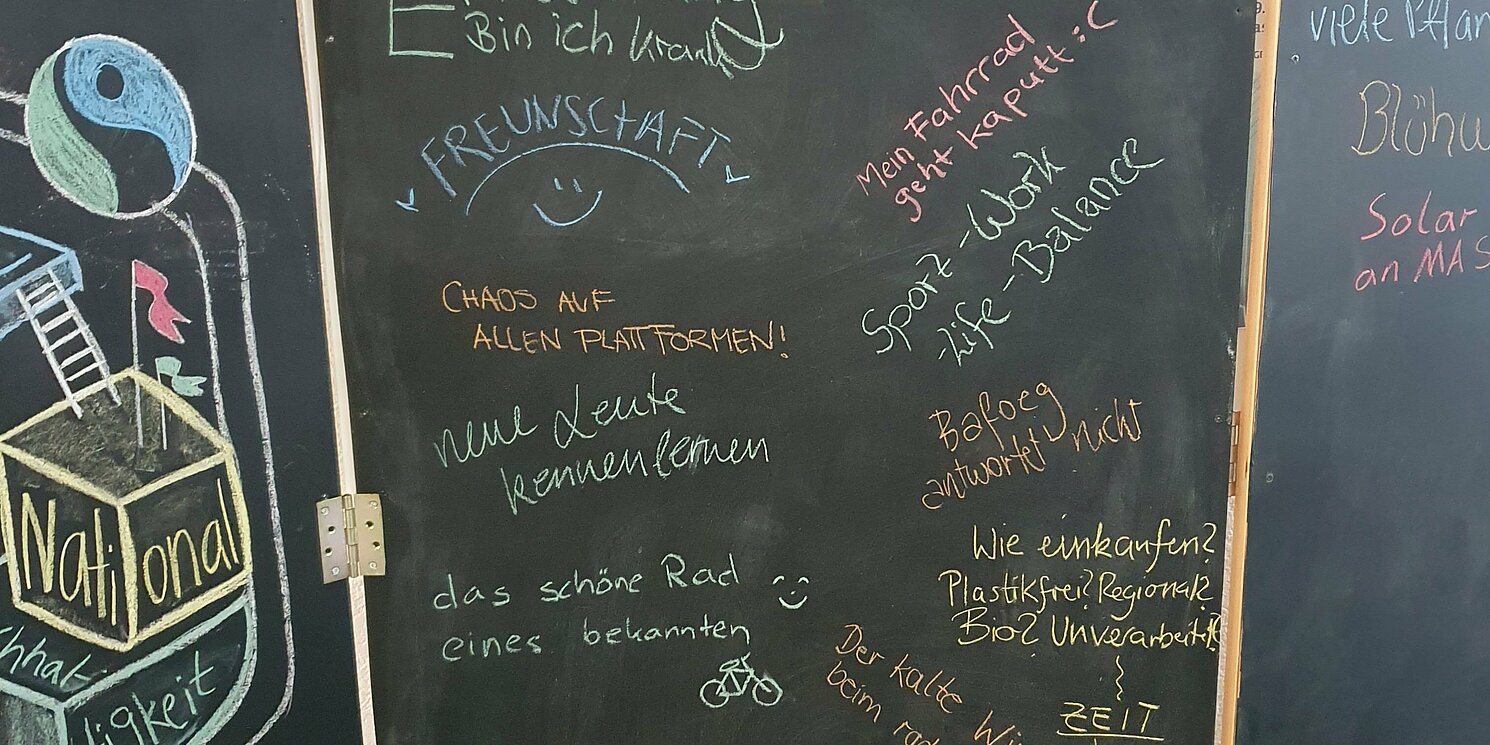 National
ligkeit
Bin ich krank
FREUNSCHAFT
CHAOS AUF
ALLEN PLATTFORMEN!
neue Leute
kennenlernen
das schöne Rad
eines bekannten
Mein Fahrrad
geht kaputt :(
Sporz-Work
-Life-Balance
Bafoeg
antwortet nicht
Wie einkaufen?
Plastikfrei? Regional?
Bio? Unverarbeitet?
ZEIT
Der kalte
beim
viele Pflan
Blühw
Solar
an MAS